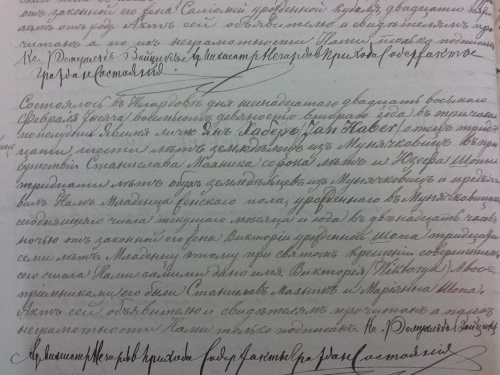 отъ законной его жены Саломеи урожденной
лѣтъ отъ роду Актъ сей объявителю и свидѣтелямъ про
читанъ а по ихъ неграмотности Нами только подписанъ
Кс. Ромуальдъ Войцикъ Администр. Негардовъ Прихода Содер. Акты
Граждан Состоянія
Состоялось въ Негардовъ дня шенадцатаго двадцать восьмаго
Февраля тысяча восемьсотъ девяносто втораго года въ три часа
пополудни Явился лично Янъ Хаберъ (Jan Haber) отъ роду трид
цати шести лѣтъ земледѣлецъ изъ Мунячковицъ въ при
сутствіи Станислава Маяника сорока лѣтъ и Юзефа Шопа
тридцати лѣтъ обоихъ земледѣльцевъ изъ Мунячковицъ и предъя
вилъ Намъ Младенца женскаго пола, урожденнаго въ Мунячковицахъ
сегодняшняго числа текущаго мѣсяца и года въ двѣнадцать часовъ
ночью отъ законной его жены Викторіи урожденной Шопа тридцати
семи лѣтъ Младенцу этому при святомъ Крещеніи совершенномъ
сего числа Нами самими дано имя, Викторія (Wiktorya) А вос
пріемниками его были Станиславъ Маяникъ и Маріанна Шопа.
Актъ сей объявителю и свидѣтелямъ прочитанъ а по ихъ
неграмотности Нами только подписанъ. Кс. Ромуальдъ Войцикъ
Администр. Негардовъ Прихода Содер. Акты Граждан Состоянія